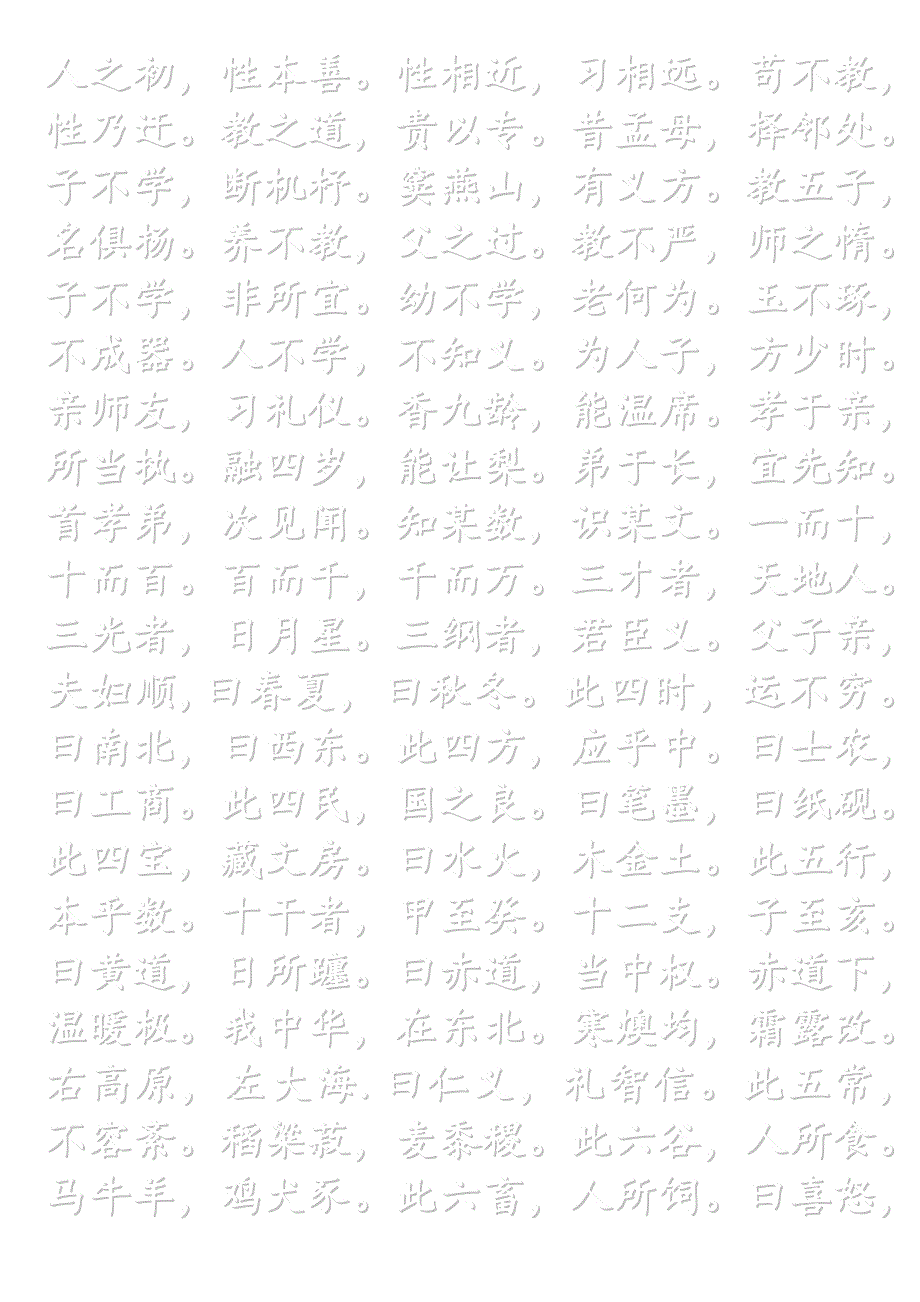 人之初，性本善。性相近，习相远。苟不教，
性乃迁。教之道，贵以专。昔孟母，择邻处。
子不学，断机杼。窦燕山，有义方。教五子，
名俱杨。养不教，父之过。教不严，师之惰。
子不学，非所宜。幼不学，老何为。玉不琢，
不成器。人不学，不知义。为人子，方少时。
亲师友，习礼仪。香九龄，能温席。孝于亲，
所当执。融四岁，能让梨。弟于长，宜先知。
首孝弟，次见闻。知某数，识某文。一而十，
十而百。百而千，千而万。三才者，天地人。
三光者，日月星。三纲者，君臣义。父子亲，
夫妇顺，曰春夏，曰秋冬。此四时，运不穷。
曰南北，曰西东。此四方，应乎中。曰士农，
曰工商。此四民，国之良。曰笔墨，曰纸砚。
此四宝，藏文房。曰水火，木金土。此五行，
本乎数。十干者，甲至癸。十二支，子至亥。
曰黄道，日所躔。曰赤道，当中权。赤道下，
温暖极。我中华，在东北。寒燠均，霜露改。
右高原，左大海.曰仁义，礼智信。此五常，
不容紊。稻粱菽，麦黍稷。此六谷，人所食。
马牛羊，鸡犬豕。此六畜，人所饲。曰喜怒，